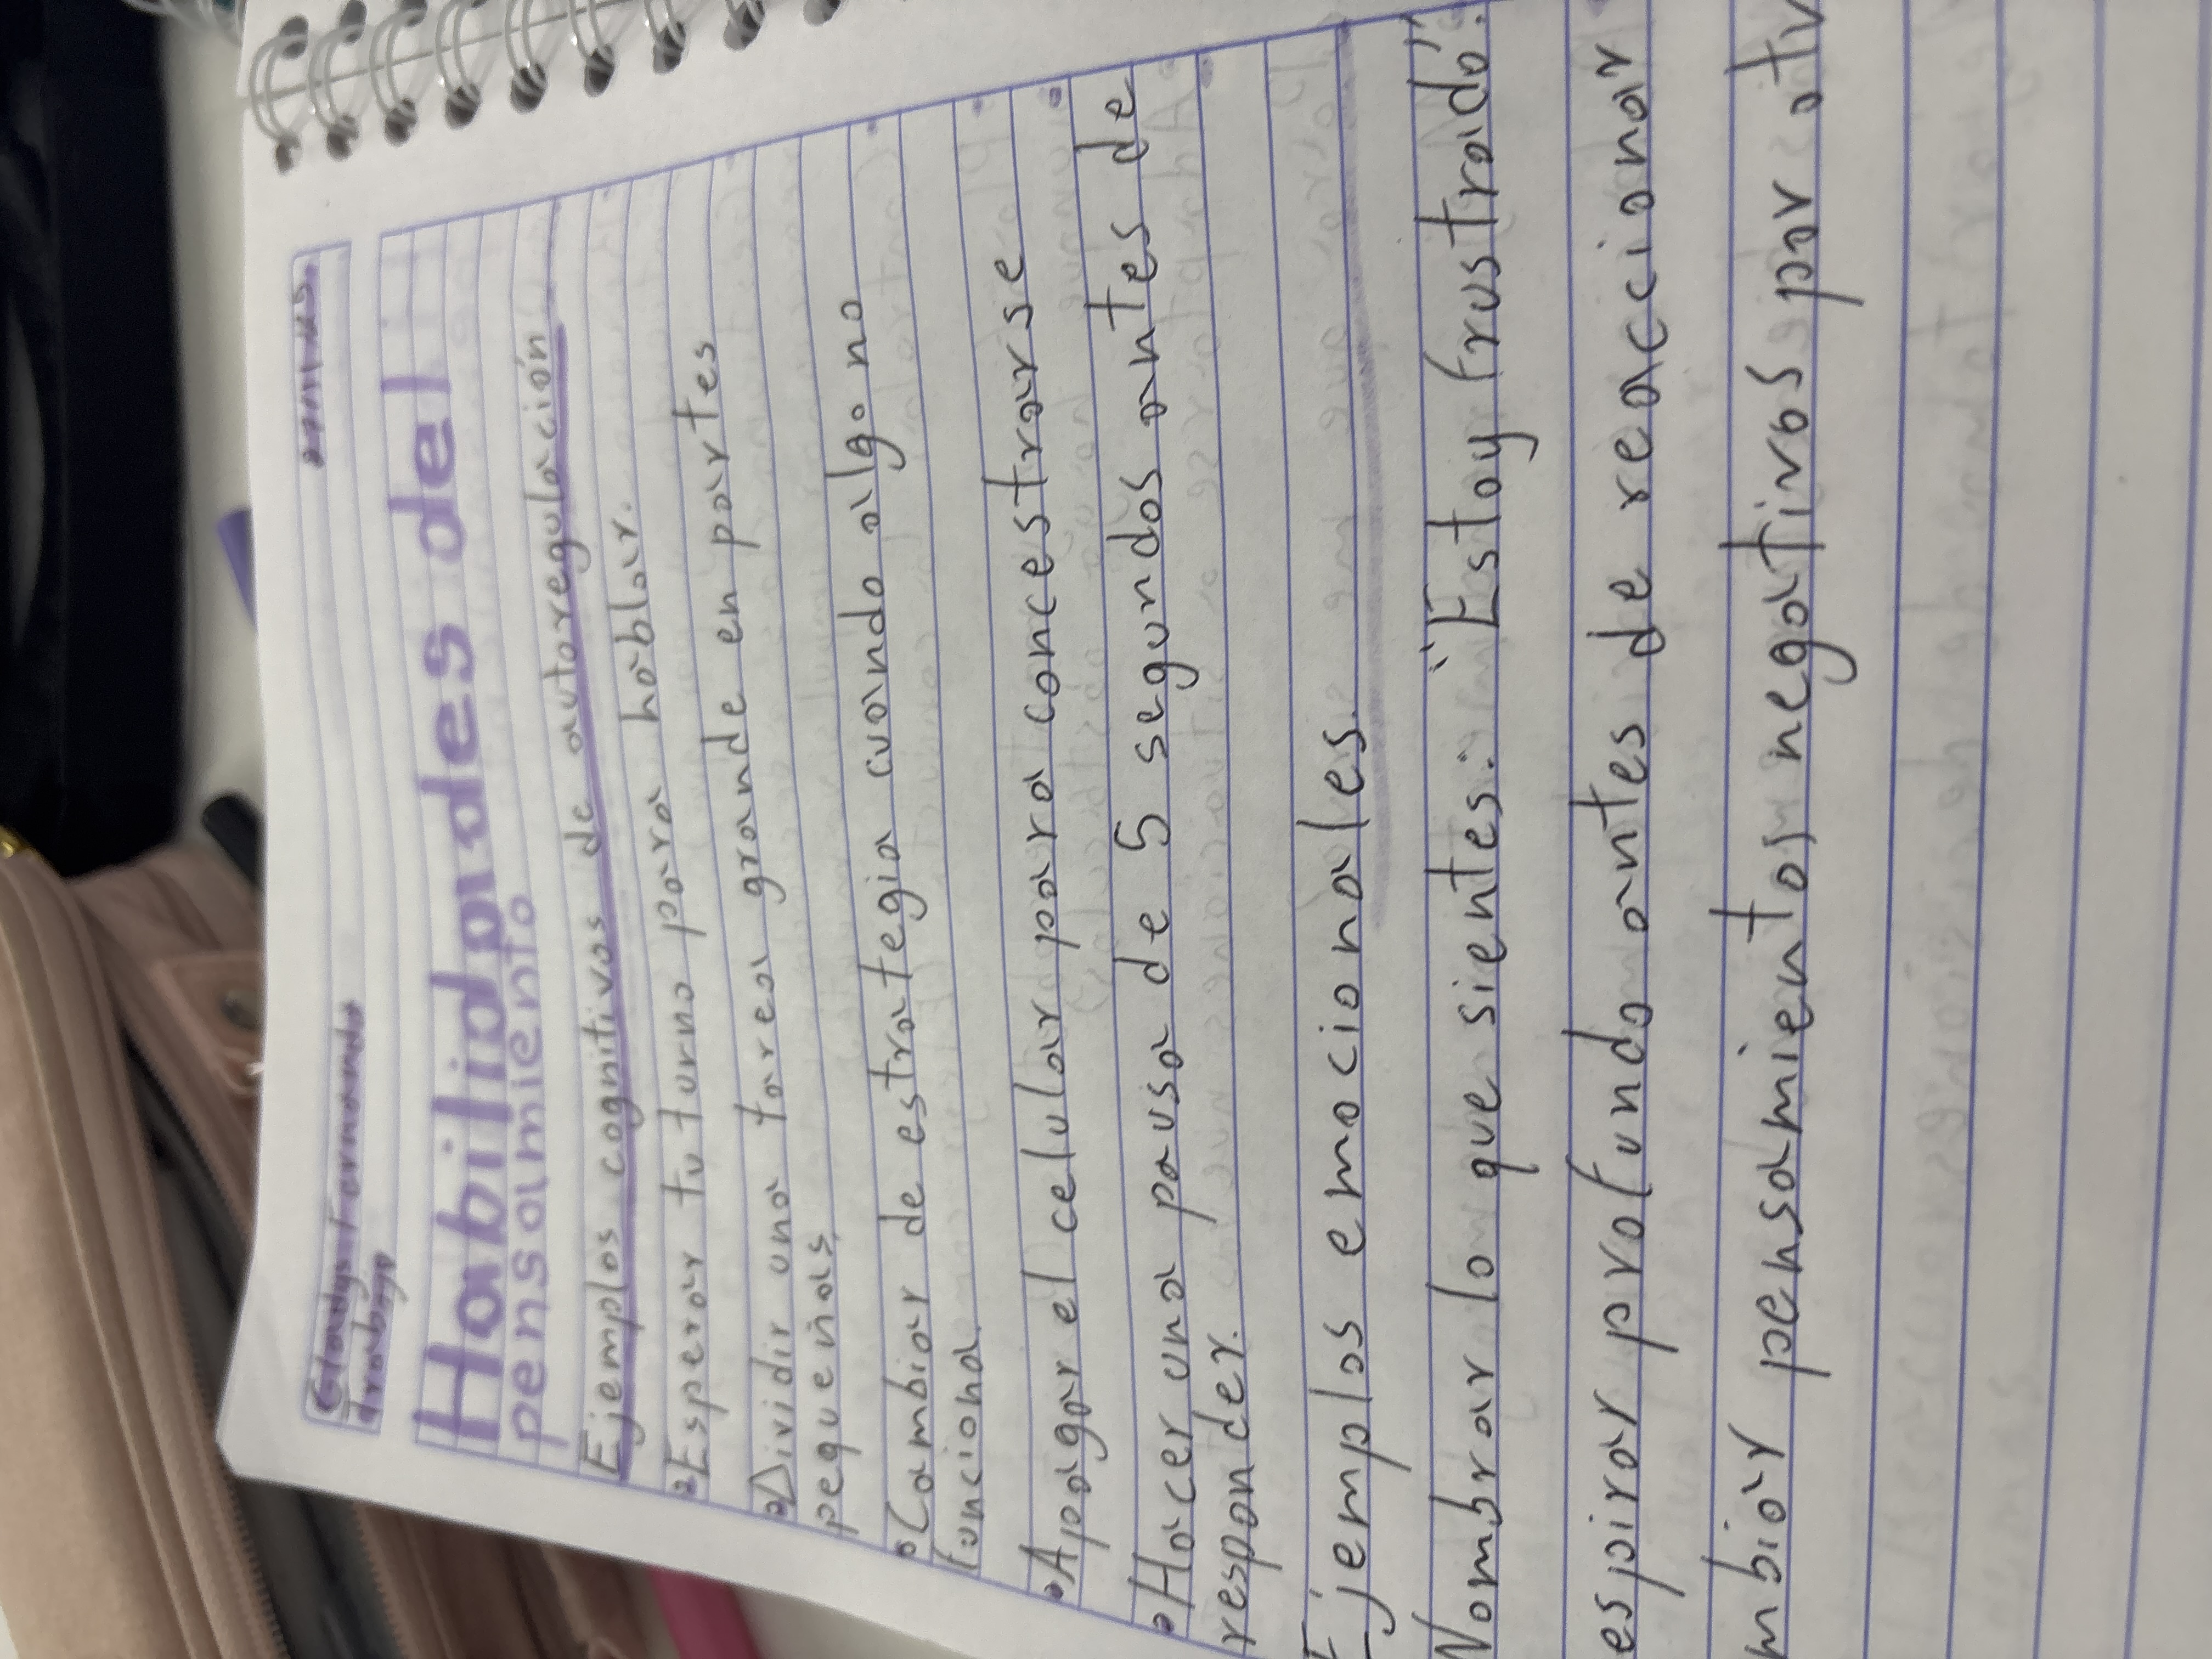 Gladys Fernanda
trabajo
Habilidades del
pensamiento
Ejemplos cognitivos de autoregulación
Esperar tu turno para hablar.
Dividir una tarea grande en partes
pequeñas
Cambiar de estrategia cuando algo no
funciona.
Apagar el celular para concestrarse
Hacer una pausa de 5 segundos antes de
responder.
Ejemplos emocionales.
Nombrar lo que sientes: "Estoy frustrado".
espirar profundo antes de reaccionar
mbiar pensamientos negativos par otr